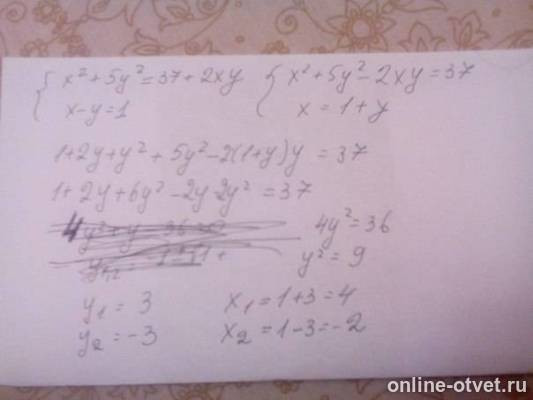 { x² + 5y² = 37 + 2xy { x² + 5y² - 2xy = 37
x - y = 1 x = 1 + y
1 + 2y + y² + 5y² - 2(1+y)y = 37
1 + 2y + 6y² - 2y - 2y² = 37
4y² = 36
y² = 9
y₁ = 3 x₁ = 1 + 3 = 4
y₂ = -3 x₂ = 1 - 3 = -2
online-otvet.ru